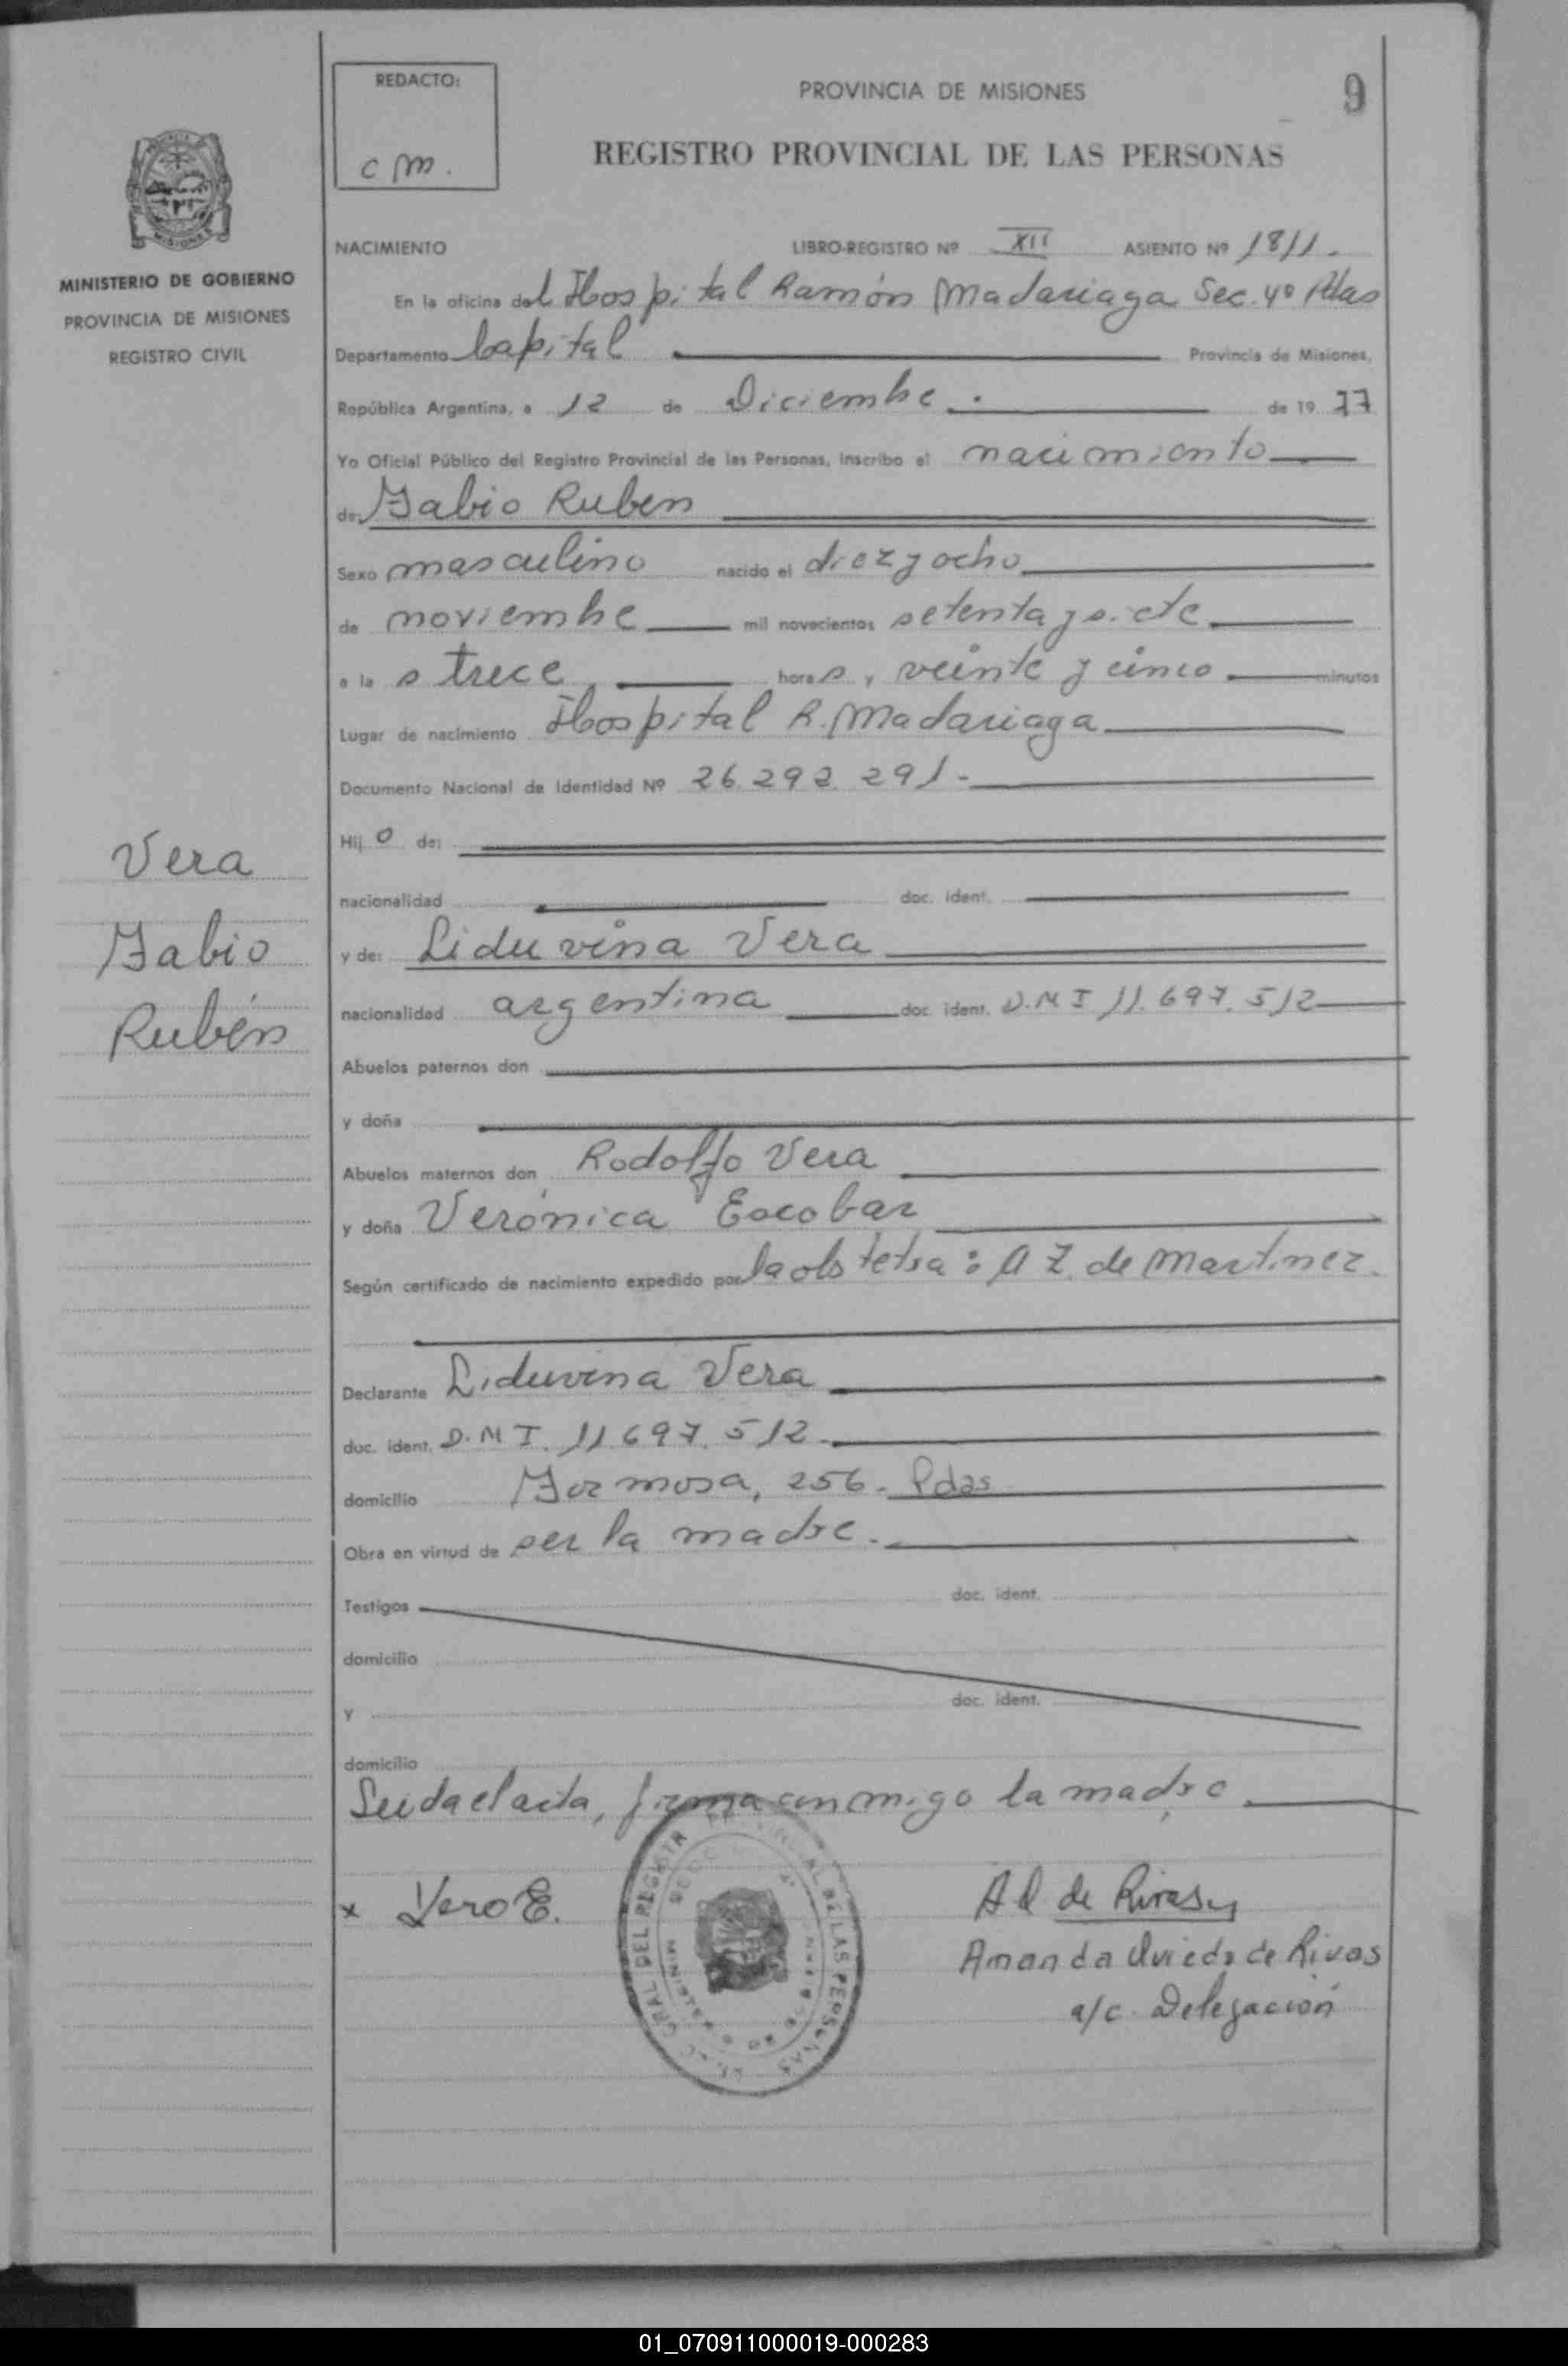 REDACTO:
c m.
PROVINCIA DE MISIONES
9
REGISTRO PROVINCIAL DE LAS PERSONAS
MINISTERIO DE GOBIERNO
PROVINCIA DE MISIONES
REGISTRO CIVIL
NACIMIENTO LIBRO-REGISTRO Nº XII ASIENTO Nº 1811.
En la oficina del Hospital Ramón Madariaga Sec. 4º Pdas
Departamento Capital Provincia de Misiones,
República Argentina, a 12 de Diciembre. de 19 77
Yo Oficial Público del Registro Provincial de las Personas, inscribo el nacimiento
de: Fabio Ruben
Sexo masculino nacido el diez y ocho
de noviembre mil novecientos setenta y siete
a la s trece hora s y veinte y cinco minutos
Lugar de nacimiento Hospital R. Madariaga
Documento Nacional de Identidad Nº 26.292.291-
Hij o de:
nacionalidad doc. ident.
y de: Liduvina Vera
nacionalidad argentina doc. ident. D.N I 11.697.512
Abuelos paternos don
y doña
Abuelos maternos don Rodolfo Vera
y doña Verónica Escobar
Según certificado de nacimiento expedido por la obstetra: A Z. de Martinez.
Declarante Liduvina Vera
doc. ident. D.N I. 11.697.512
domicilio Formosa, 256. Pdas
Obra en virtud de ser la madre.
Testigos doc. ident.
domicilio
y doc. ident.
domicilio
Leida el acta, firma conmigo la madre
Vera
Fabio
Rubén
x Vero E.
A O. de Rivas
Amanda Oviedo de Rivas
a/c. Delegación
GRAL DEL REGISTR DE LAS PERSONAS
01_070911000019-000283